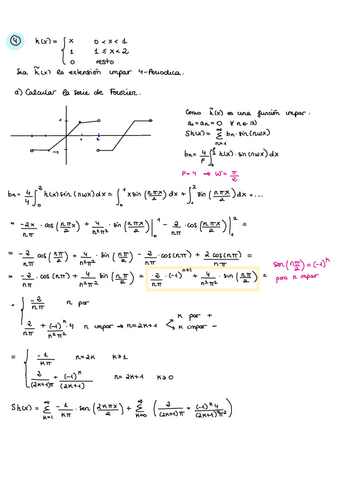 ④ h(x) = { x 0 < x < 1
1 1 ≤ x < 2
0 resto
Sea h̃(x) la extensión impar 4-Periodica.
a) Calcular la serie de Fourier.
Como h̃(x) es una función impar:
a₀ = aₙ = 0 ∀ n ∈ ℕ
Sh(x) = ∞ Σ n=1 bₙ · sin(nωx)
bₙ = 4/P ∫ h(x) · sin(nωx) dx
P = 4 → ω = π/2
bₙ = 4/4 ∫₀² h(x) sin(nωx) dx = ∫₀¹ x sin(nπx/2) dx + ∫₁² sin(nπx/2) dx = ...
= -2x/nπ · cos(nπx/2) + 4/n²π² · sin(nπx/2) |₀¹ - 2/nπ · cos(nπx/2) |₁² =
= -2/nπ cos(nπ/2) + 4/n²π² · sin(nπ/2) - 2/nπ · cos(nπ) + 2cos(nπ/2)/nπ =
= -2/nπ · cos(nπ) + 4/n²π² · sin(nπ/2) = 2/nπ · (-1)ⁿ⁺¹ + 4/n²π² · sin(nπ/2) =
sen(nπ/2) = (-1)ᵏ
para n impar
= { -2/nπ n par
2/nπ + (-1)ᵏ · 4/n²π² n impar → n = 2k+1 { k par +
k impar -
= { -1/kπ n = 2k k ≥ 1
2/(2k+1)π + (-1)ᵏ/(2k+1) n = 2k+1 k ≥ 0
Sh(x) = ∞ Σ k=1 -1/kπ · sen(2kπx/2) + ∞ Σ k=0 (2/(2k+1)π + (-1)ᵏ4/(2k+1)²π²)